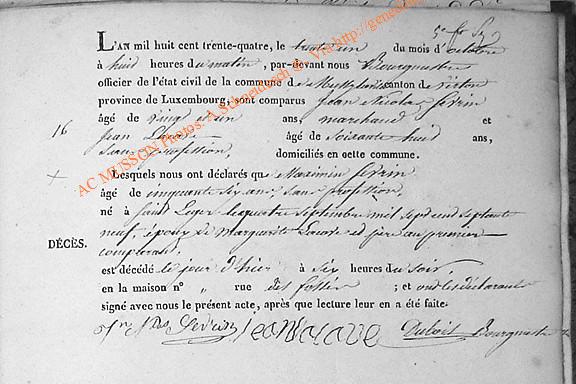 5e ft Sy
L'AN mil huit cent trente-quatre, le trente un du mois d'octobre
à huit heures du matin, par-devant nous Bourgmestre
officier de l'état civil de la commune de canton de Virton
province de Luxembourg, sont comparus Jean Nicolas Sevrin
16
âgé de vingt et un ans, marchand et
Jean Lacave âgé de soixante huit ans,
sans profession, domiciliés en cette commune.
Lesquels nous ont déclarés que Maximin Sevrin
âgé de cinquante six ans, sans profession,
né à Saint Leger le quatre septembre mil sept cent septante
neuf, époux de Marguerite Lacave et père au premier
DÉCÈS.
comparant,
est décédé le jour d'hier à six heures du soir,
en la maison n° „ rue des fossés ; et ont les déclarants
signé avec nous le présent acte, après que lecture leur en a été faite
Jn Nas Sevrin Jean Lacave Dubois Bourgmestre
AC MUSSON Photos: A. Schneidesch © Via http://gene